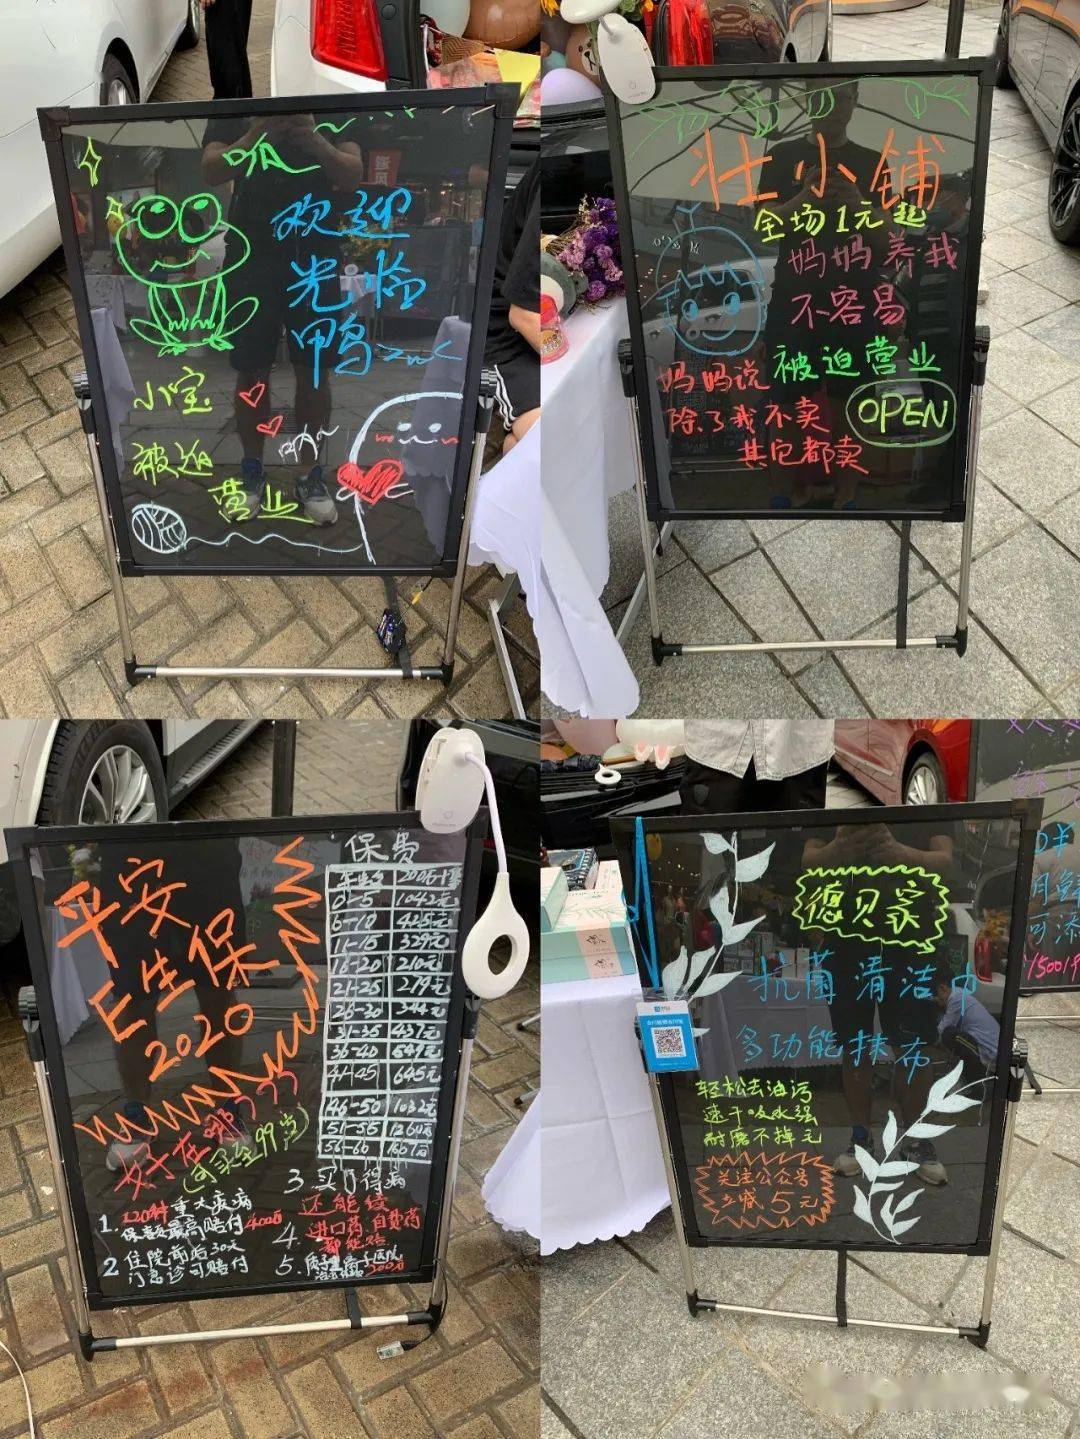 呱
欢迎
光临
鸭
小宝
被迫
营业
壮小铺
全场1元起
妈妈养我
不容易
妈妈说
被迫营业
除了我不卖
其它都卖
OPEN
平安
E生保
2020
好在哪???
可买至99岁
保费
0-5 1042元
6-10 425元
11-15 329元
16-20 210元
21-25 279元
26-30 344元
31-35 437元
36-40 541元
41-45 645元
46-50 1032元
51-55 1261元
56-60 1601元
1. 120种重大疾病
保额最高赔付400万
2. 住院前后30天
门急诊可赔付
3. 买了得病
还能续
4. 进口药自费药
都能赔
5. 质子重离子医院
200万
德贝家
抗菌清洁巾
多功能抹布
轻松去油污
速干吸水强
耐磨不掉毛
关注公众号
立减5元
可添